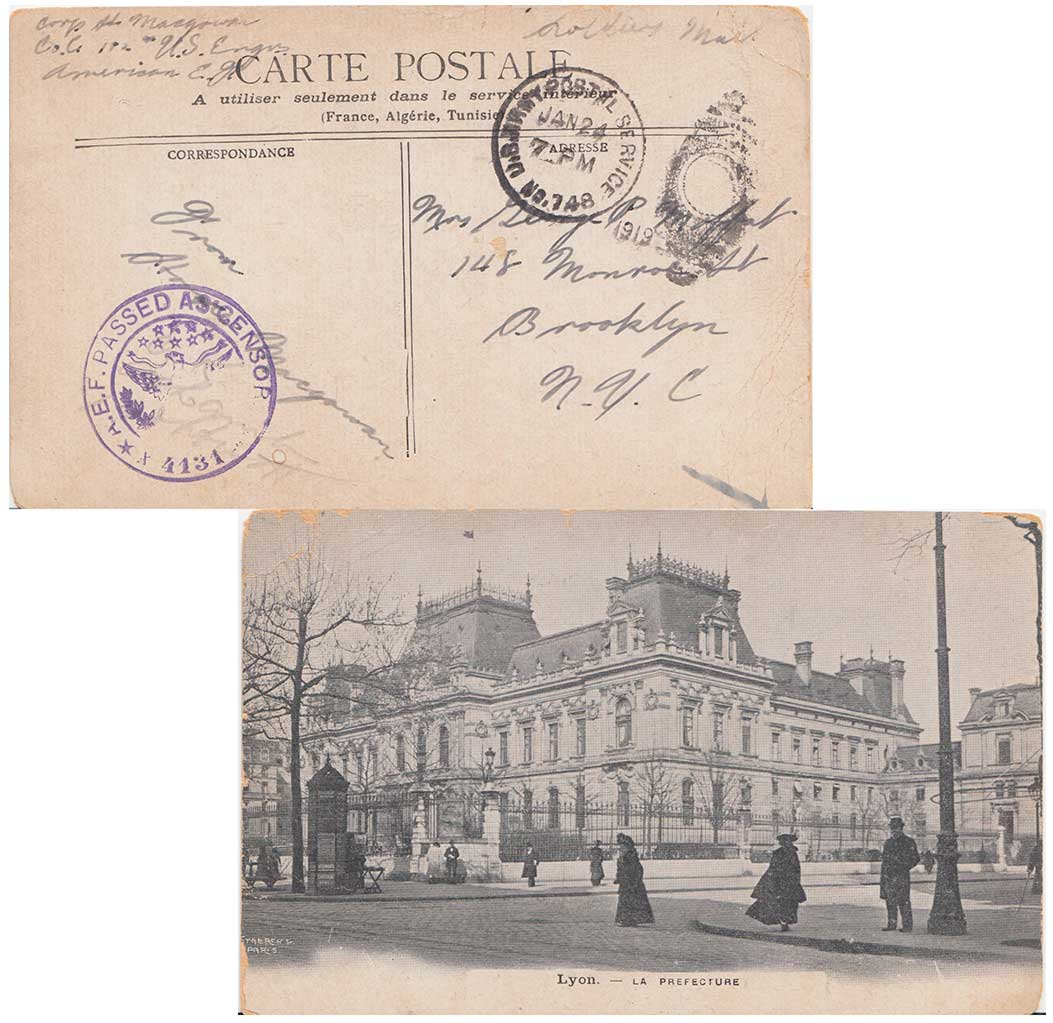 Corp Macgowan
Co. C 102nd U.S. Engrs
American E.F.
Soldiers Mail
CARTE POSTALE
A utiliser seulement dans le service intérieur
(France, Algérie, Tunisie)
CORRESPONDANCE
ADRESSE
U.S. ARMY POSTAL SERVICE
JAN 24
7 PM
No. 748
1919
Mrs George P.
148 Monroe St
Brooklyn
N.Y.C
From
Macgowan
A.E.F. PASSED AS CENSOR
4131
Lyon. — LA PREFECTURE
PARIS